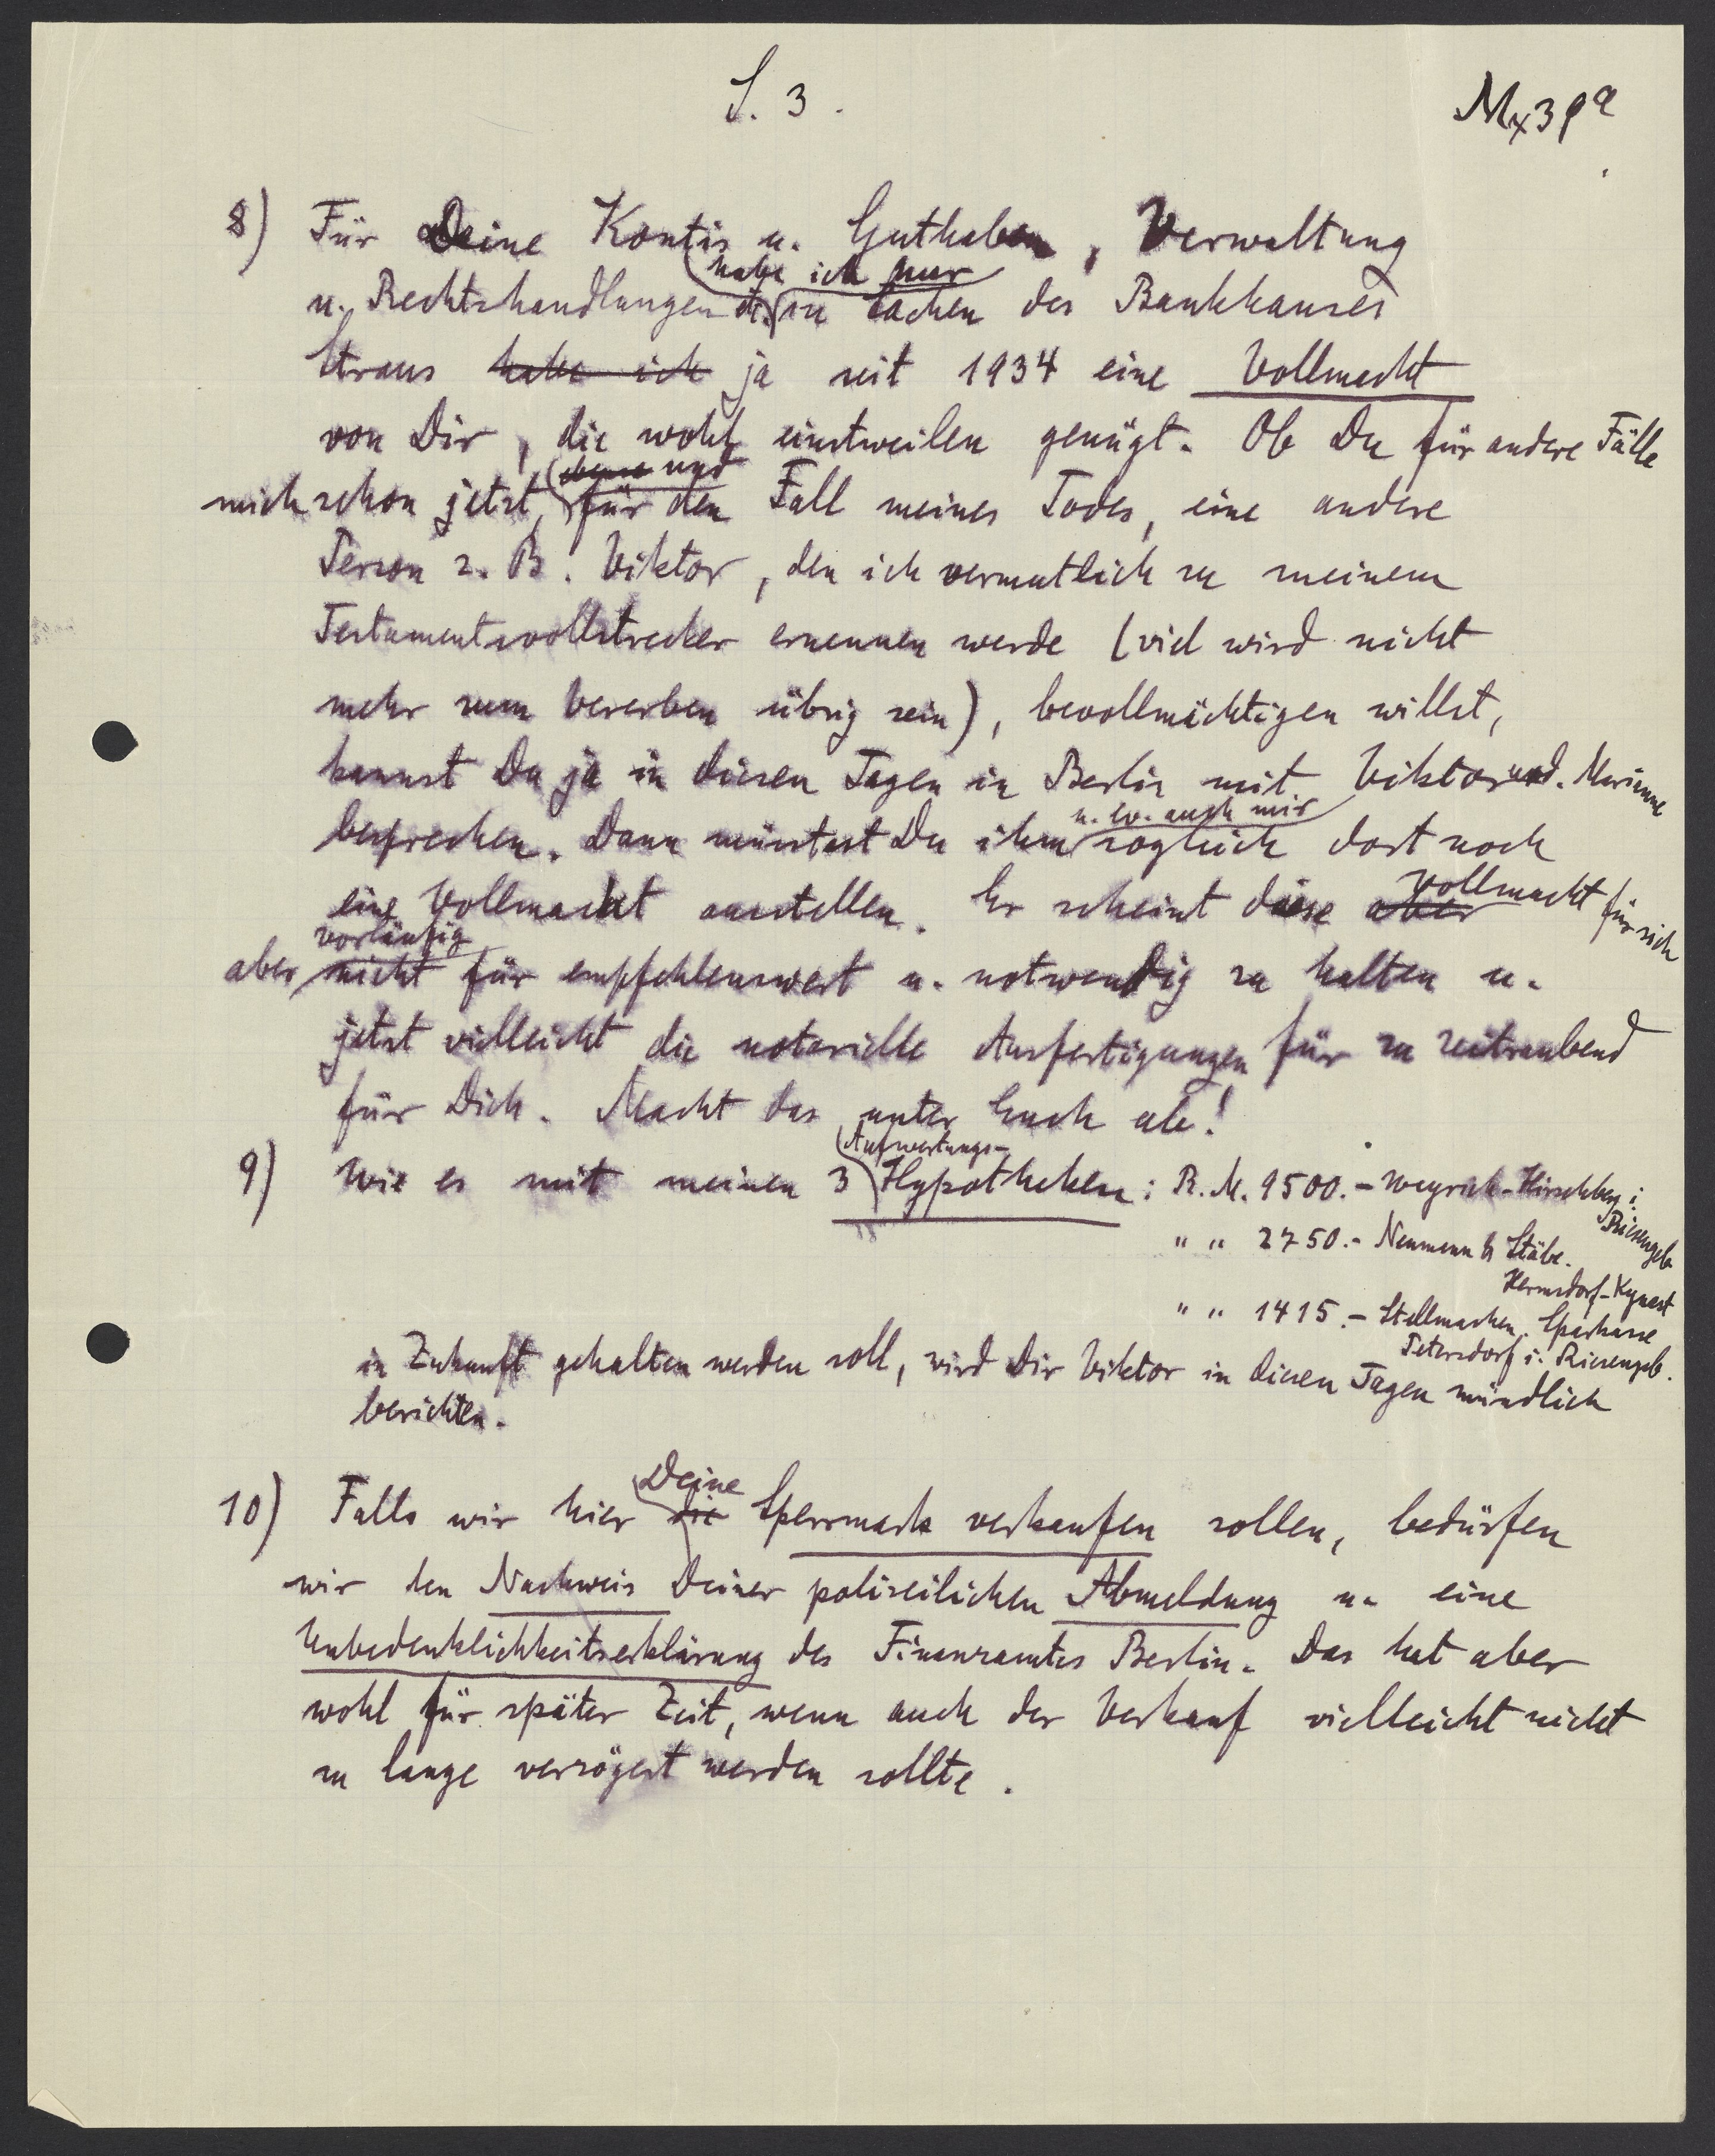 S. 3.
Mx39a
8) Für Deine Kontis u. Guthaben, Verwaltung
habe ich nur
u. Rechtshandlungen in Sachen des Bankhauses
Straus habe ich ja seit 1934 eine Vollmacht
von Dir, die wohl einstweilen genügt. Ob Du für andere Fälle
und
mich schon jetzt, für den Fall meines Todes, eine andere
Person z. B. Viktor, den ich vermutlich zu meinem
Testamentsvollstrecker ernennen werde (viel wird nicht
mehr zum Vererben übrig sein), bevollmächtigen willst,
kannst Du ja in diesen Tagen in Berlin mit Viktor und. Marianne
u. ev. auch mir
besprechen. Dann müsstest Du ihm sogleich dort noch
Vollmacht für sich
eine Vollmacht ausstellen. Er scheint diese aber
vorläufig
aber nicht für empfehlenswert u. notwendig zu halten u.
jetzt vielleicht die notarielle Ausfertigungen für zu zeitraubend
für Dich. Macht das unter Euch ab!
Aufwertungs-
9) Wie es mit meinen 3 Hypotheken: R.M. 9500.- Weyrich-Hirschberg i.
Riesengeb
" " 2750.- Neumann
Hermsdorf-Kynast
" " 1415.- Sparkasse
Petersdorf i. Riesengeb.
in Zukunft gehalten werden soll, wird Dir Viktor in diesen Tagen mündlich
berichten.
Deine
10) Falls wir hier die Sperrmark verkaufen sollen, bedürfen
wir den Nachweis Deiner polizeilichen Abmeldung u. eine
Unbedenklichkeitserklärung des Finanzamtes Berlin. Das hat aber
wohl für später Zeit, wenn auch der Verkauf vielleicht nicht
zu lange verzögert werden sollte.